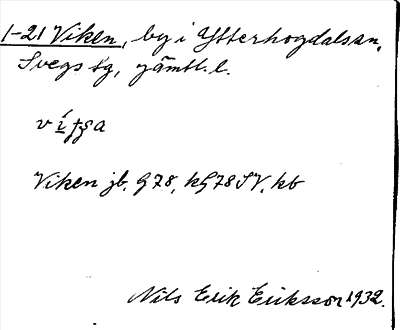 1-21 Viken, by i Ytterhogdals sn,
Svegs tg, Jämtl. l.
Viken jb, G78, kG78SV, kb
Nils Erik Eriksson 1932.